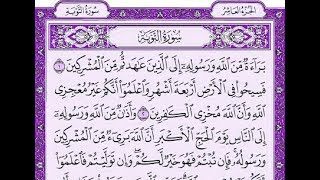 سورة التوبة
الجزء العاشر
سورة التوبة
براءة من الله ورسوله إلى الذين عاهدتم من المشركين ١
فسيحوا في الأرض أربعة أشهر واعلموا أنكم غير معجزي
الله وأن الله مخزي الكافرين ٢ وأذان من الله ورسوله
إلى الناس يوم الحج الأكبر أن الله بريء من المشركين
ورسوله فإن تبتم فهو خير لكم وإن توليتم فاعلموا